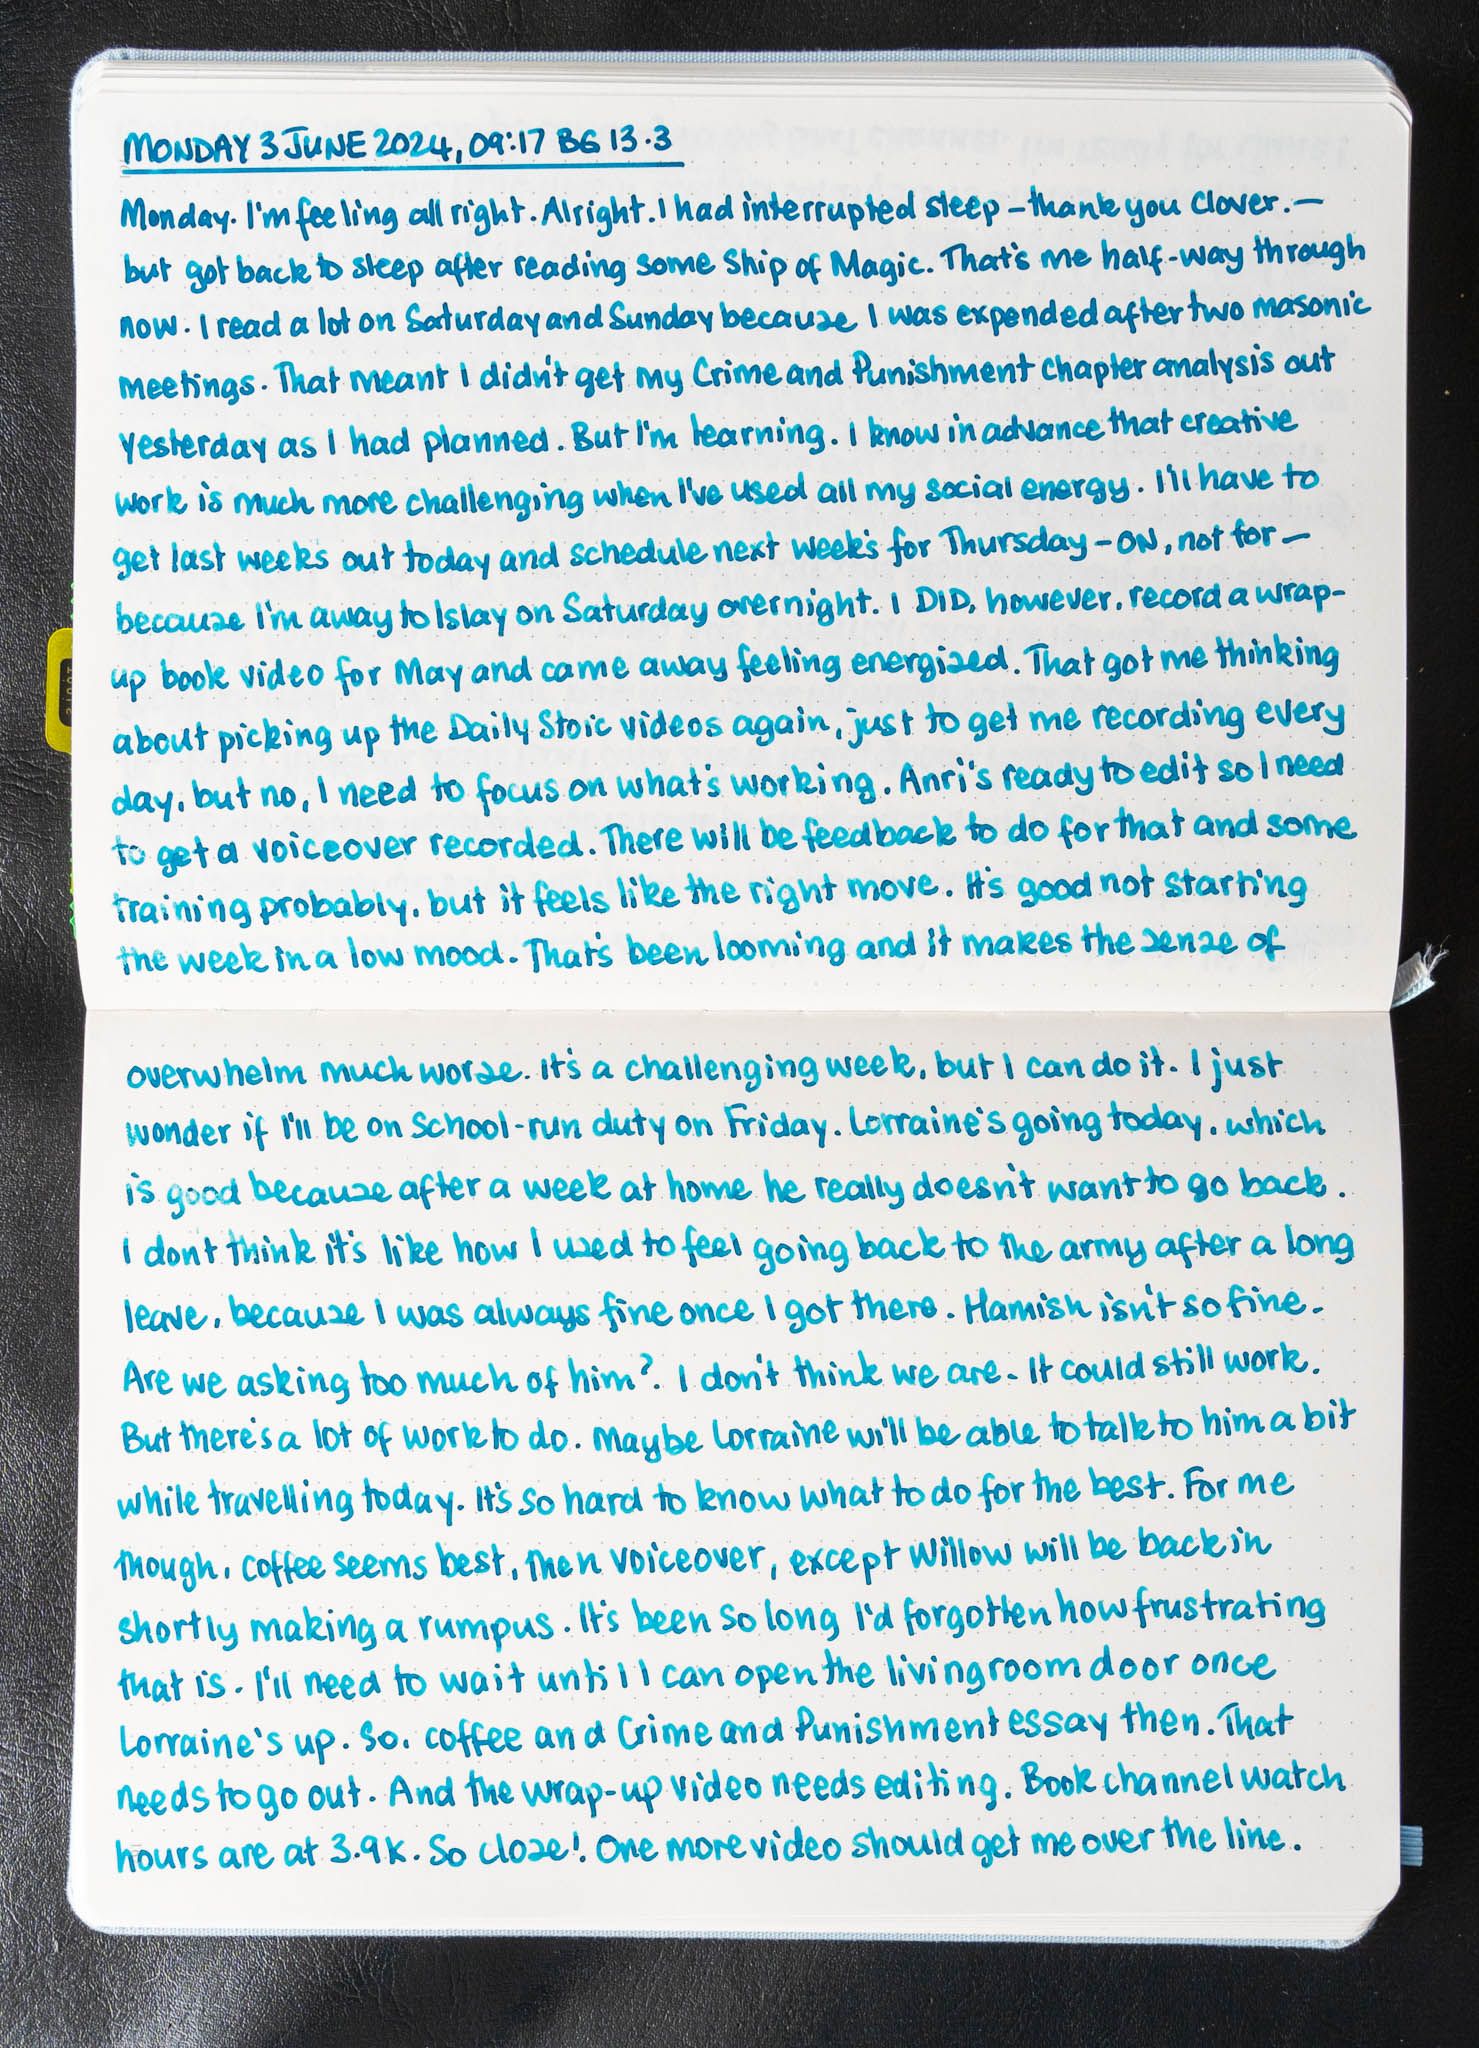 MONDAY 3 JUNE 2024, 09:17 BG 13.3
Monday. I'm feeling all right. Alright. I had interrupted sleep – thank you Clover. –
but got back to sleep after reading some Ship of Magic. That's me half-way through
now. I read a lot on Saturday and Sunday because I was expended after two masonic
meetings. That meant I didn't get my Crime and Punishment chapter analysis out
yesterday as I had planned. But I'm learning. I know in advance that creative
work is much more challenging when I've used all my social energy. I'll have to
get last weeks out today and schedule next week's for Thursday – ON, not for –
because I'm away to Islay on Saturday overnight. I DID, however, record a wrap-
up book video for May and came away feeling energised. That got me thinking
about picking up the Daily Stoic videos again, just to get me recording every
day, but no, I need to focus on what's working. Anri's ready to edit so I need
to get a voiceover recorded. There will be feedback to do for that and some
training probably, but it feels like the right move. It's good not starting
the week in a low mood. That's been looming and it makes the sense of
overwhelm much worse. It's a challenging week, but I can do it. I just
wonder if I'll be on school-run duty on Friday. Lorraine's going today, which
is good because after a week at home he really doesn't want to go back.
I don't think it's like how I used to feel going back to the army after a long
leave, because I was always fine once I got there. Hamish isn't so fine.
Are we asking too much of him? I don't think we are. It could still work.
But there's a lot of work to do. Maybe Lorraine will be able to talk to him a bit
while travelling today. It's so hard to know what to do for the best. For me
though, coffee seems best, then voiceover, except Willow will be back in
shortly making a rumpus. It's been so long I'd forgotten how frustrating
that is. I'll need to wait until I can open the livingroom door once
Lorraine's up. So, coffee and Crime and Punishment essay then. That
needs to go out. And the wrap-up video needs editing. Book channel watch
hours are at 3.9K. So close! One more video should get me over the line.